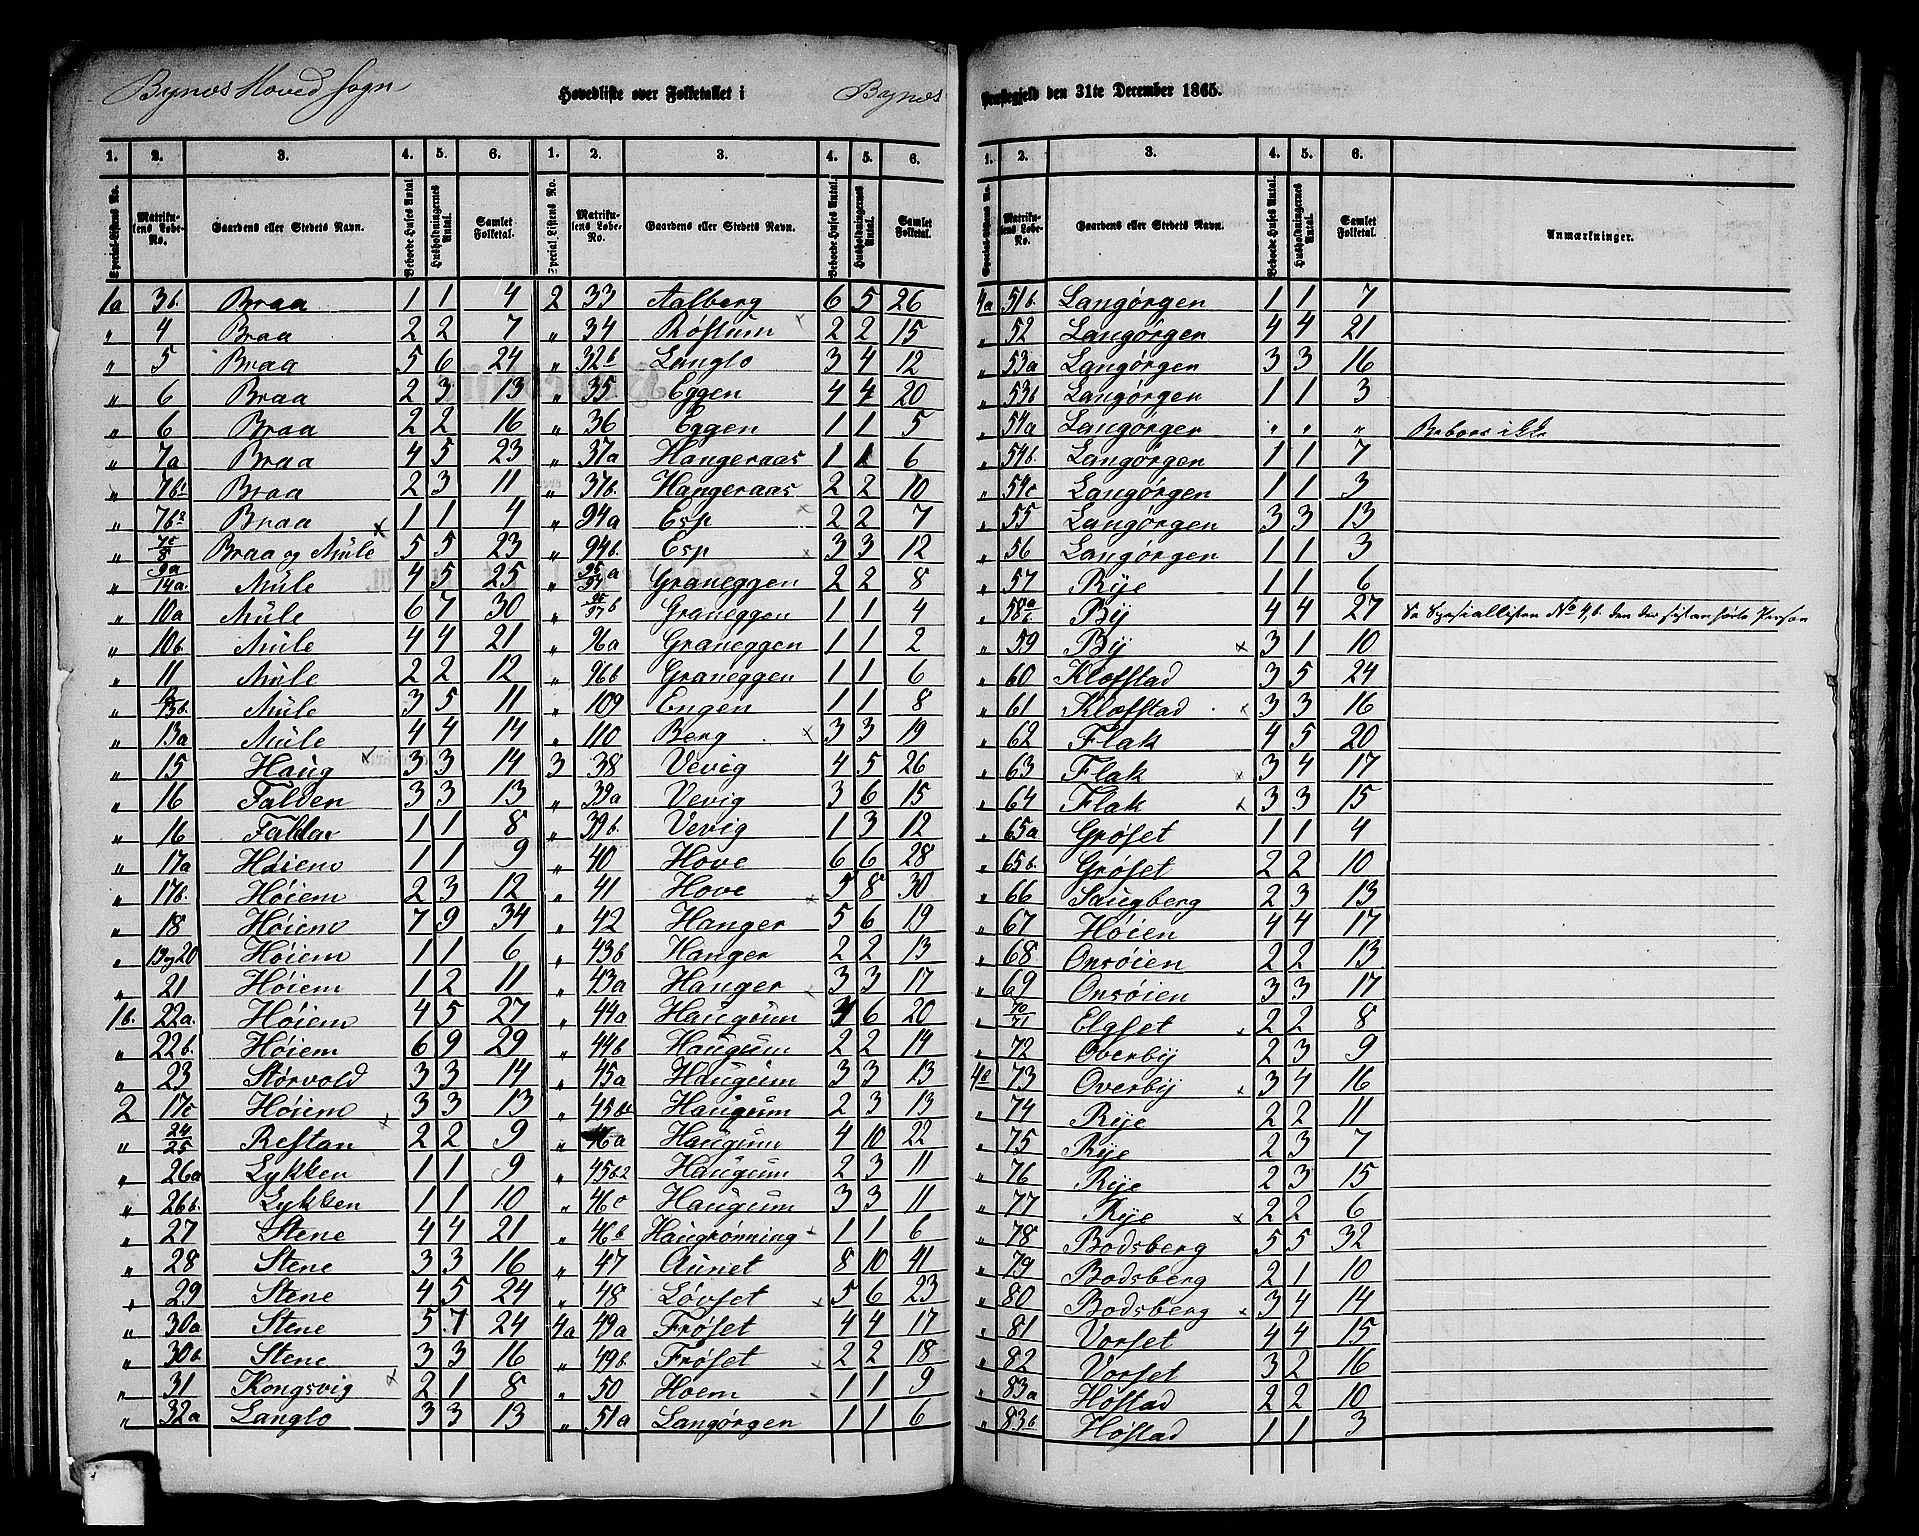 Bynæs Hoved sogn
Hovedliste over Folketallet i Bynæs Præstegjeld den 31te December 1865.
1. 2. 3. 4. 5. 6.
Special-Listens No. Matrikulens Løbe-No. Gaardens eller Stedets Navn. Beboede Huses Antal Husholdningernes Antal. Samlet Folketal.
1a 3b. Braa 1 1 4
" 4 Braa 2 2 7
" 5 Braa 5 6 24
" 6 Braa 2 3 13
" 6 Braa 2 2 16
" 7a Braa 4 5 23
" 7b1 Braa 2 3 11
" 7b2 Braa 1 1 4
" 7c/8 Braa og Mule 5 5 23
" 9a/14a. Mule 4 5 25
" 10a Mule 6 7 30
" 10b. Mule 4 4 21
" 11 Mule 2 2 12
" 13b. Mule 3 5 11
" 13a Mule 4 4 14
" 15 Haug 3 3 14
" 16 Falden 3 3 13
" 16 1 1 8
" 17a Høiem 1 1 9
" 17b. Høiem 2 3 12
" 18 Høiem 7 9 34
" 13 og 20 Høiem 1 1 6
" 21 Høiem 1 2 11
1b. 22a. Høiem 4 5 27
" 22b. Høiem 6 9 29
" 23 Størvold 3 3 14
2 17c Høiem 3 3 13
" 24/25 Restan 2 2 9
" 26a Lykken 1 1 9
" 26b. Lykken 1 1 10
" 27 Stene 4 4 21
" 28 Stene 3 3 16
" 29 Stene 4 5 24
" 30a Stene 5 7 24
" 30b. Stene 3 3 16
" 31 Kongsvig 2 1 8
" 32a Langlo 3 3 13
1. 2. 3. 4. 5. 6.
Special-Listens No. Matrikulens Løbe-No. Gaardens eller Stedets Navn. Beboede Huses Antal. Husholdningernes Antal. Samlet Folketal.
2 33 Aalberg 6 5 26
" 34 Røstum 2 2 15
" 32b Langlo 3 4 12
" 35 Eggen 4 4 20
" 36 Eggen 1 1 5
" 37a Hangeraas 1 1 6
" 37b. Hangeraas 2 2 10
" 94a Esp 2 2 7
" 94b. Esp 3 3 12
" 95/97 a Graneggen 2 2 8
" 95/97 b Graneggen 1 1 4
" 96a Graneggen 1 1 2
" 96b Graneggen 1 1 6
" 109 Engen 1 1 8
" 110 Berg 3 3 19
3 38 Vevig 4 5 26
" 39a Vevig 3 6 15
" 39b. Vevig 1 3 12
" 40 Hove 6 6 28
" 41 Hove 5 8 30
" 42 Hanger 5 6 19
" 43b Hanger 2 2 13
" 43a Hanger 3 3 17
" 44a Haugum 6 20
" 44b Haugum 2 2 14
" 45a Haugum 3 3 13
" Haugum 2 3 13
" 46a Haugum 4 10 22
" 45b2 Haugum 2 3 11
" 46c Haugum 3 3 11
" 46b Haugrønning 1 1 6
" 47 Aunet 8 10 41
" 48 Løvset 5 6 23
4a 49a Frøset 4 4 17
" 49b. Frøset 2 2 18
" 50 Hoem 1 1 9
" 51a Langørgen 1 1 6
1. 2. 3. 4. 5. 6.
Special-Listens No. Matrikulens Løbe-No. Gaardens eller Stedets Navn. Beboede Huses Antal. Husholdningernes Antal. Samlet Folketal. Anmærkninger.
4a 51b. Langørgen 1 1 7
" 52 Langørgen 4 4 21
" 53a Langørgen 3 3 16
" 53b Langørgen 1 1 3
" 54a Langørgen " " " Beboes ikke
" 54b. Langørgen 1 1 7
" 54c Langørgen 1 1 3
" 55 Langørgen 3 3 13
" 56 Langørgen 1 1 3
" 57 Rye 1 1 6
" 58a By 4 4 27 Se Speciallisten No 4,b. den der sidstanførte Person
" 59 By 3 1 10
" 60 Klæfstad 3 5 24
" 61 Klæfstad 3 3 16
" 62 Flak 4 5 20
" 63 Flak 3 4 17
" 64 Flak 3 3 15
" 65a Grøset 1 1 4
" 65b. Grøset 2 2 10
" 66 Saugberg 2 3 13
" 67 Høien 4 4 17
" 68. Onsøien 2 2 13
" 69 Onsøien 3 3 17
" 70/71 Elgset 2 2 8
" 72 Overby 2 3 9
4b 73 Overby 3 4 16
" 74 Rye 2 2 11
" 75 Rye 2 3 7
" 76 Rye 2 3 15
" 77 Rye 2 2 6
" 78 Bodsberg 5 5 32
" 79 Bodsberg 2 1 10
" 80 Bodsberg 3 4 14
" 81 Vorset 4 4 15
" 82 Vorset 3 2 16
" 83a Høstad 2 2 10
" 83b Høstad 1 1 3